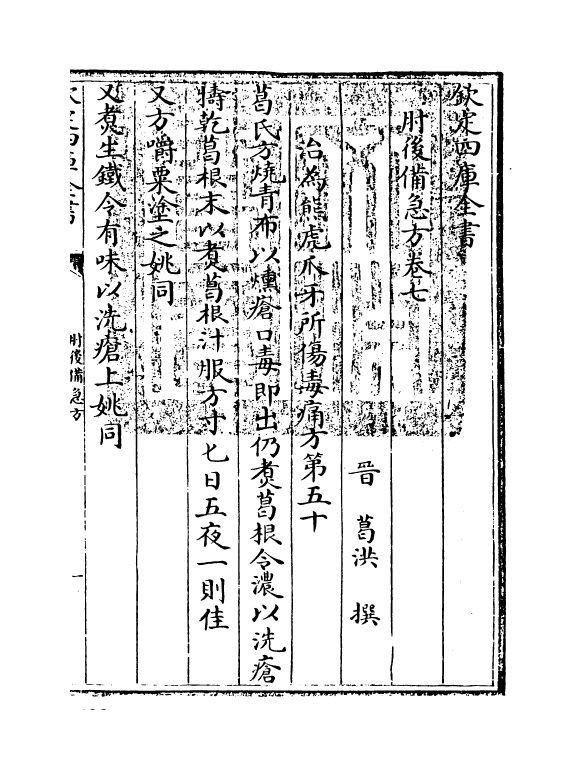 欽定四庫全書
肘後備急方卷七
晉 葛洪 撰
治為熊虎爪牙所傷毒痛方第五十
葛氏方燒青布以燻瘡口毒即出仍煑葛根令濃以洗瘡
擣乾葛根末以煑葛根汁服方寸匕日五夜一則佳
又方嚼粟塗之姚同
又煑生鐵令有味以洗瘡上姚同
肘後備急方
一